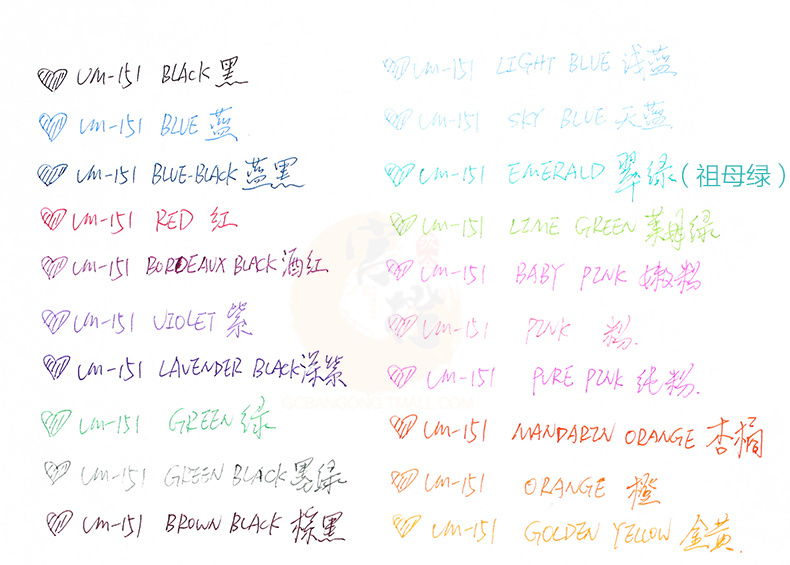 UM-151 BLACK 黑
UM-151 BLUE 蓝
UM-151 BLUE-BLACK 蓝黑
UM-151 RED 红
UM-151 BORDEAUX BLACK 酒红
UM-151 VIOLET 紫
UM-151 LAVENDER BLACK 深紫
UM-151 GREEN 绿
UM-151 GREEN BLACK 墨绿
UM-151 BROWN BLACK 棕黑
UM-151 LIGHT BLUE 浅蓝
UM-151 SKY BLUE 天蓝.
UM-151 EMERALD 翠绿(祖母绿)
UM-151 LIME GREEN 莱姆绿
UM-151 BABY PINK 嫩粉
UM-151 PINK 粉.
UM-151 PURE PINK 纯粉.
UM-151 MANDARIN ORANGE 杏橘
UM-151 ORANGE 橙
UM-151 GOLDEN YELLOW 金黄.